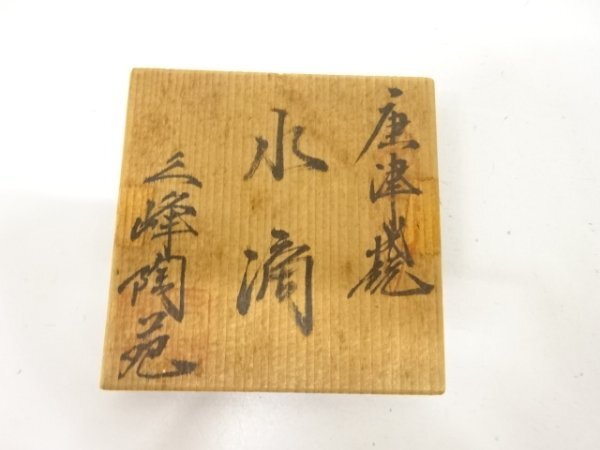 唐津焼
水滴
峰陶苑